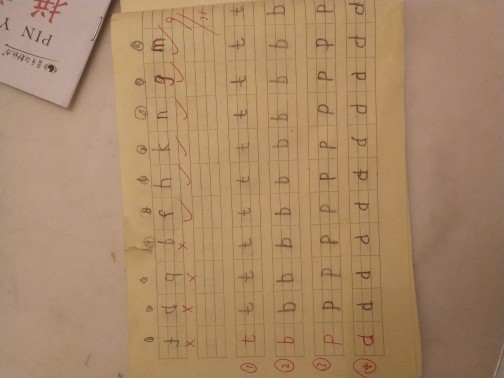 t d q b f h k n g m
① t t t t t t t t t t t
② b b b b b b b b b b b
③ p p p p p p p p p p p
④ d d d d d d d d d d d
拼
PIN Y